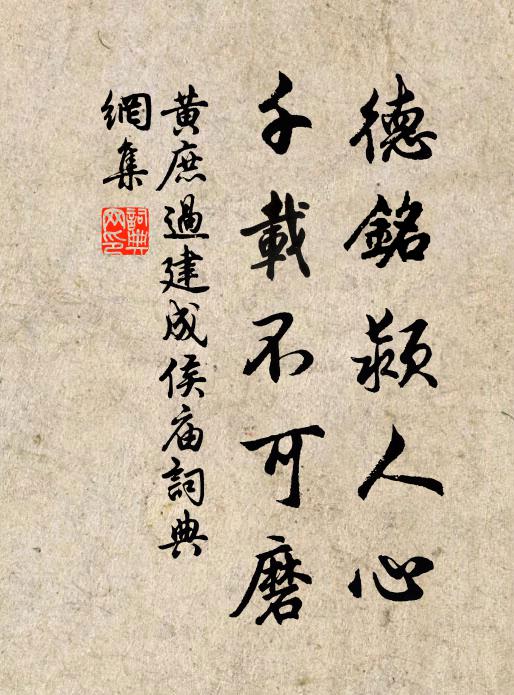 德銘潁人心
千載不可磨
黃庶過建成侯庙詞典
網集
詞典
网印